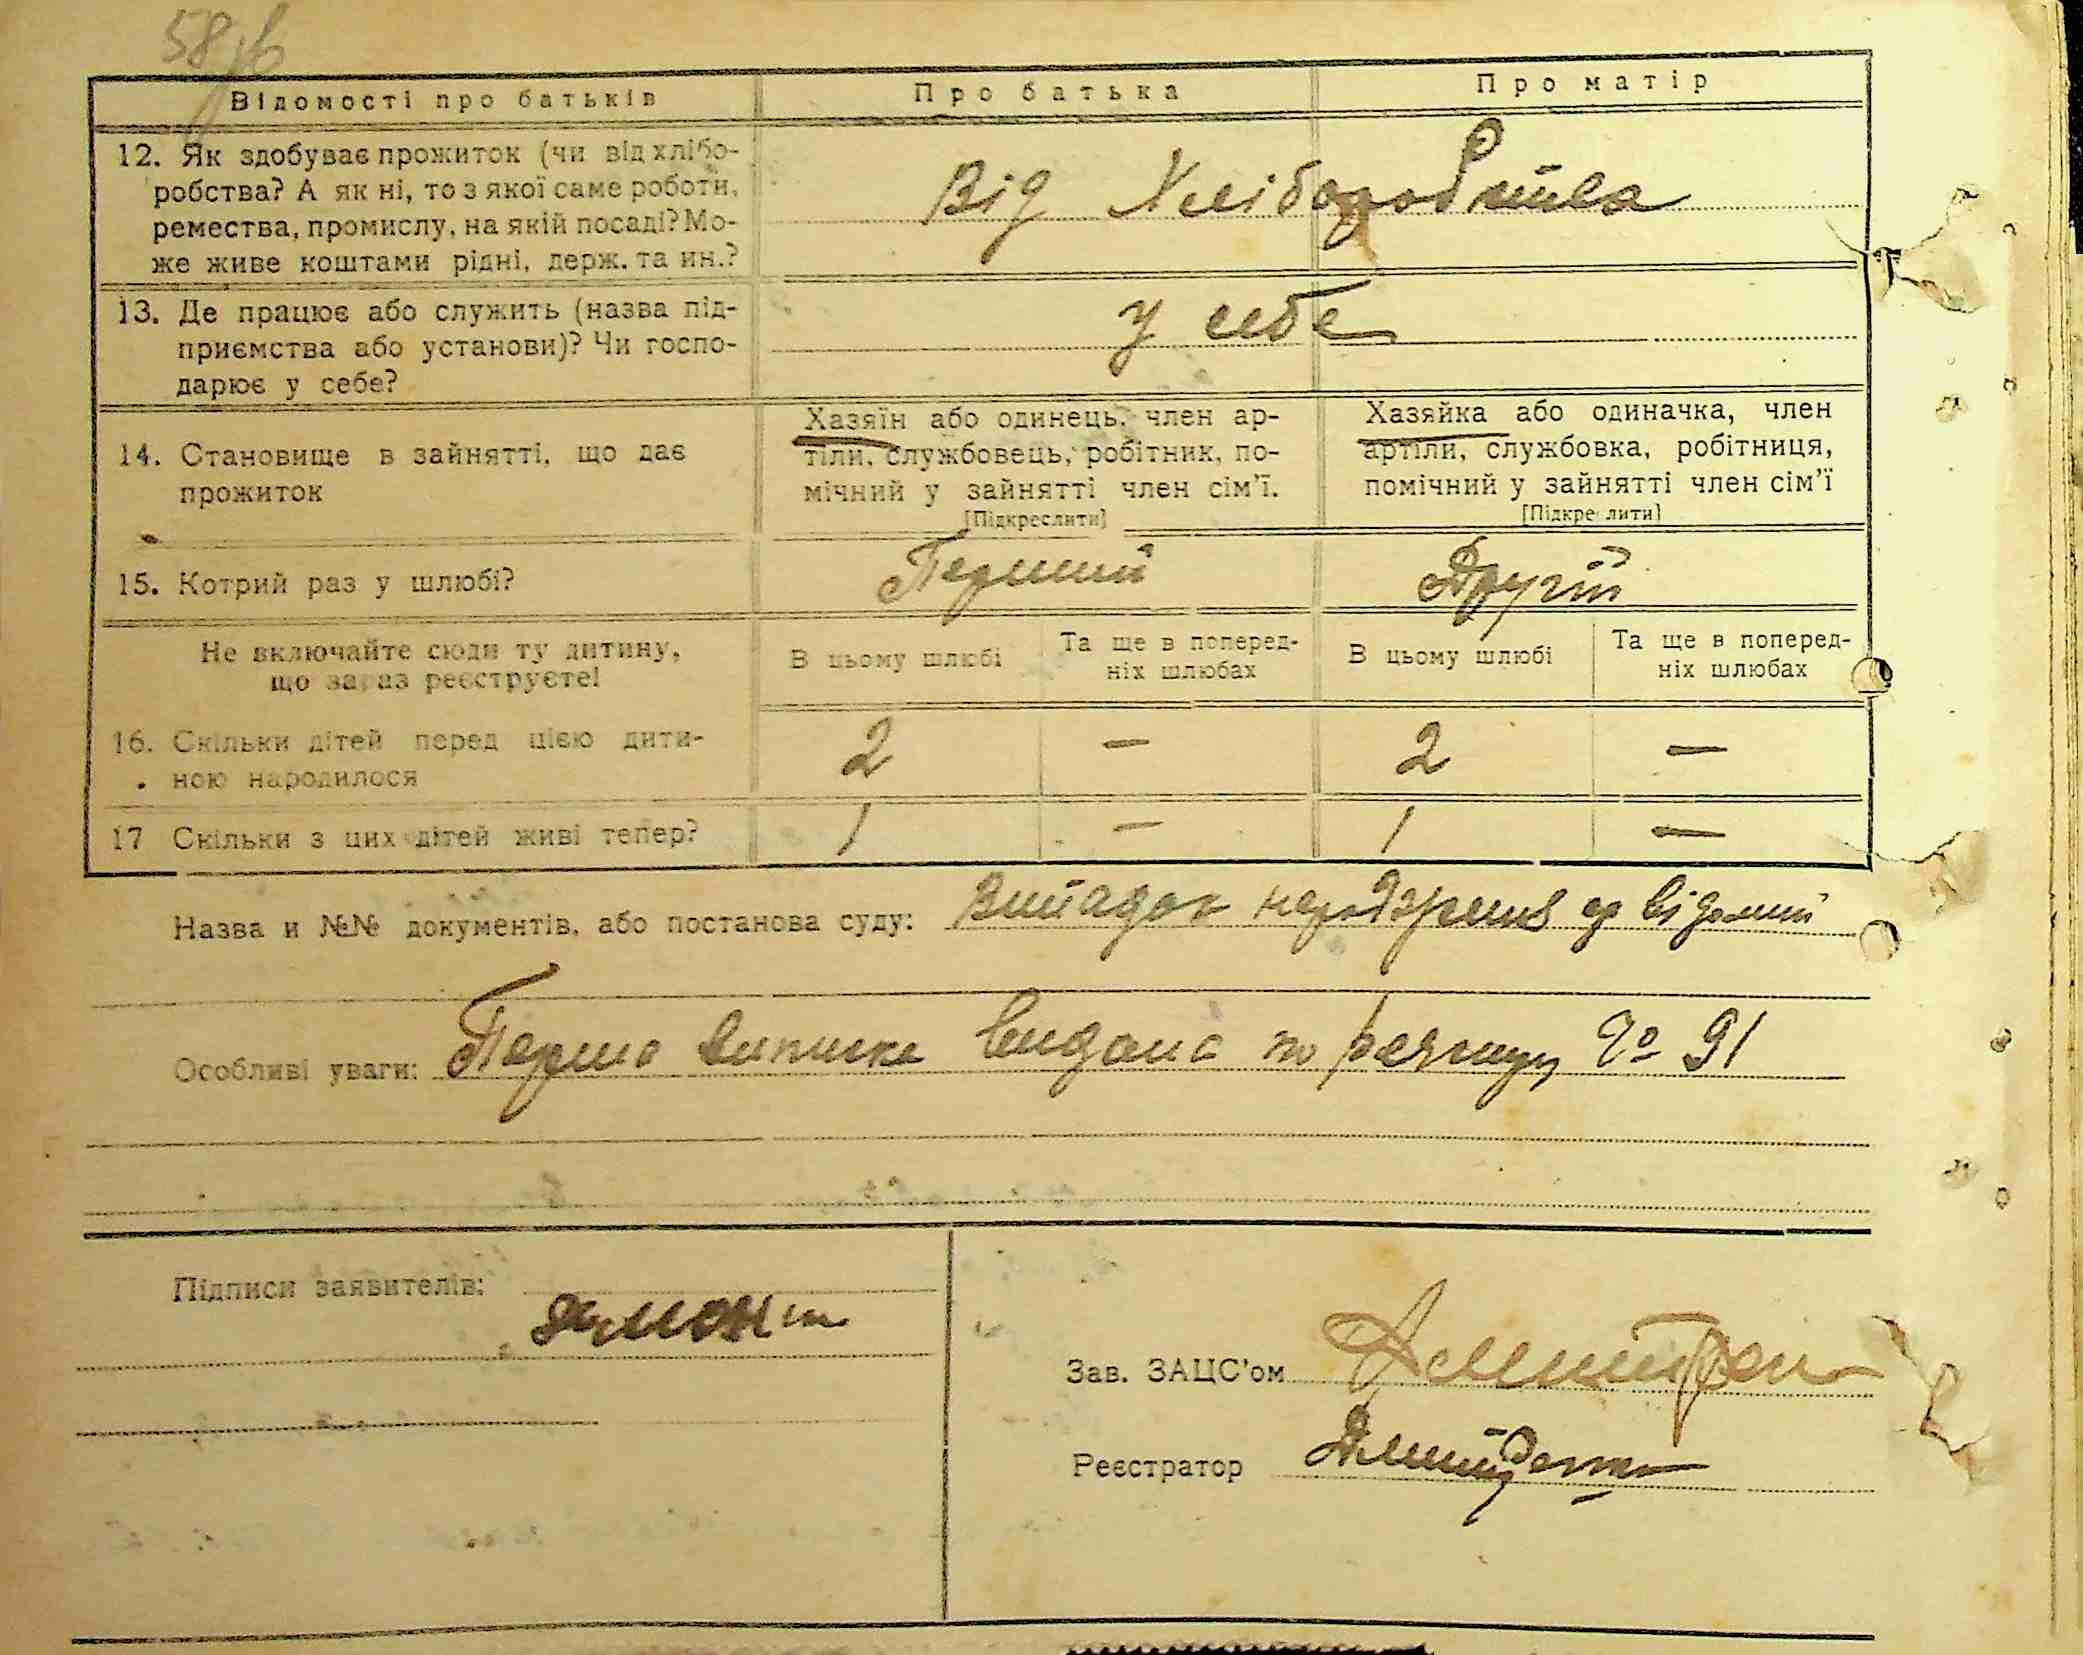 58 зв
Відомості про батьків
Про батька
Про матір
12. Як здобуває прожиток (чи від хлібо-
робства? А як ні, то з якої саме роботи,
ремества, промислу, на якій посаді? Мо-
же живе коштами рідні, держ. та ин.?
Від Хліборобства
13. Де працює або служить (назва під-
приємства або установи)? Чи госпо-
дарює у себе?
у себе
14. Становище в зайнятті, що дає
прожиток
Хазяїн або одинець, член ар-
тіли, службовець, робітник, по-
мічний у зайнятті член сім'ї.
[Підкреслити]
Хазяйка або одиначка, член
артіли, службовка, робітниця,
помічний у зайнятті член сім'ї
[Підкреслити]
15. Котрий раз у шлюбі?
Перший
Другій
Не включайте сюди ту дитину,
що зараз реєструєте!
В цьому шлюбі
Та ще в поперед-
ніх шлюбах
В цьому шлюбі
Та ще в поперед-
ніх шлюбах
16. Скільки дітей перед цією дити-
ною народилося
2 — 2 —
17 Скільки з цих дітей живі тепер?
1 — 1 —
Назва и №№ документів, або постанова суду: Випадок народження відомий
Особливі уваги: Перша виписка видана по № 91
Підписи заявителів:
Зав. ЗАЦС'ом
Реєстратор